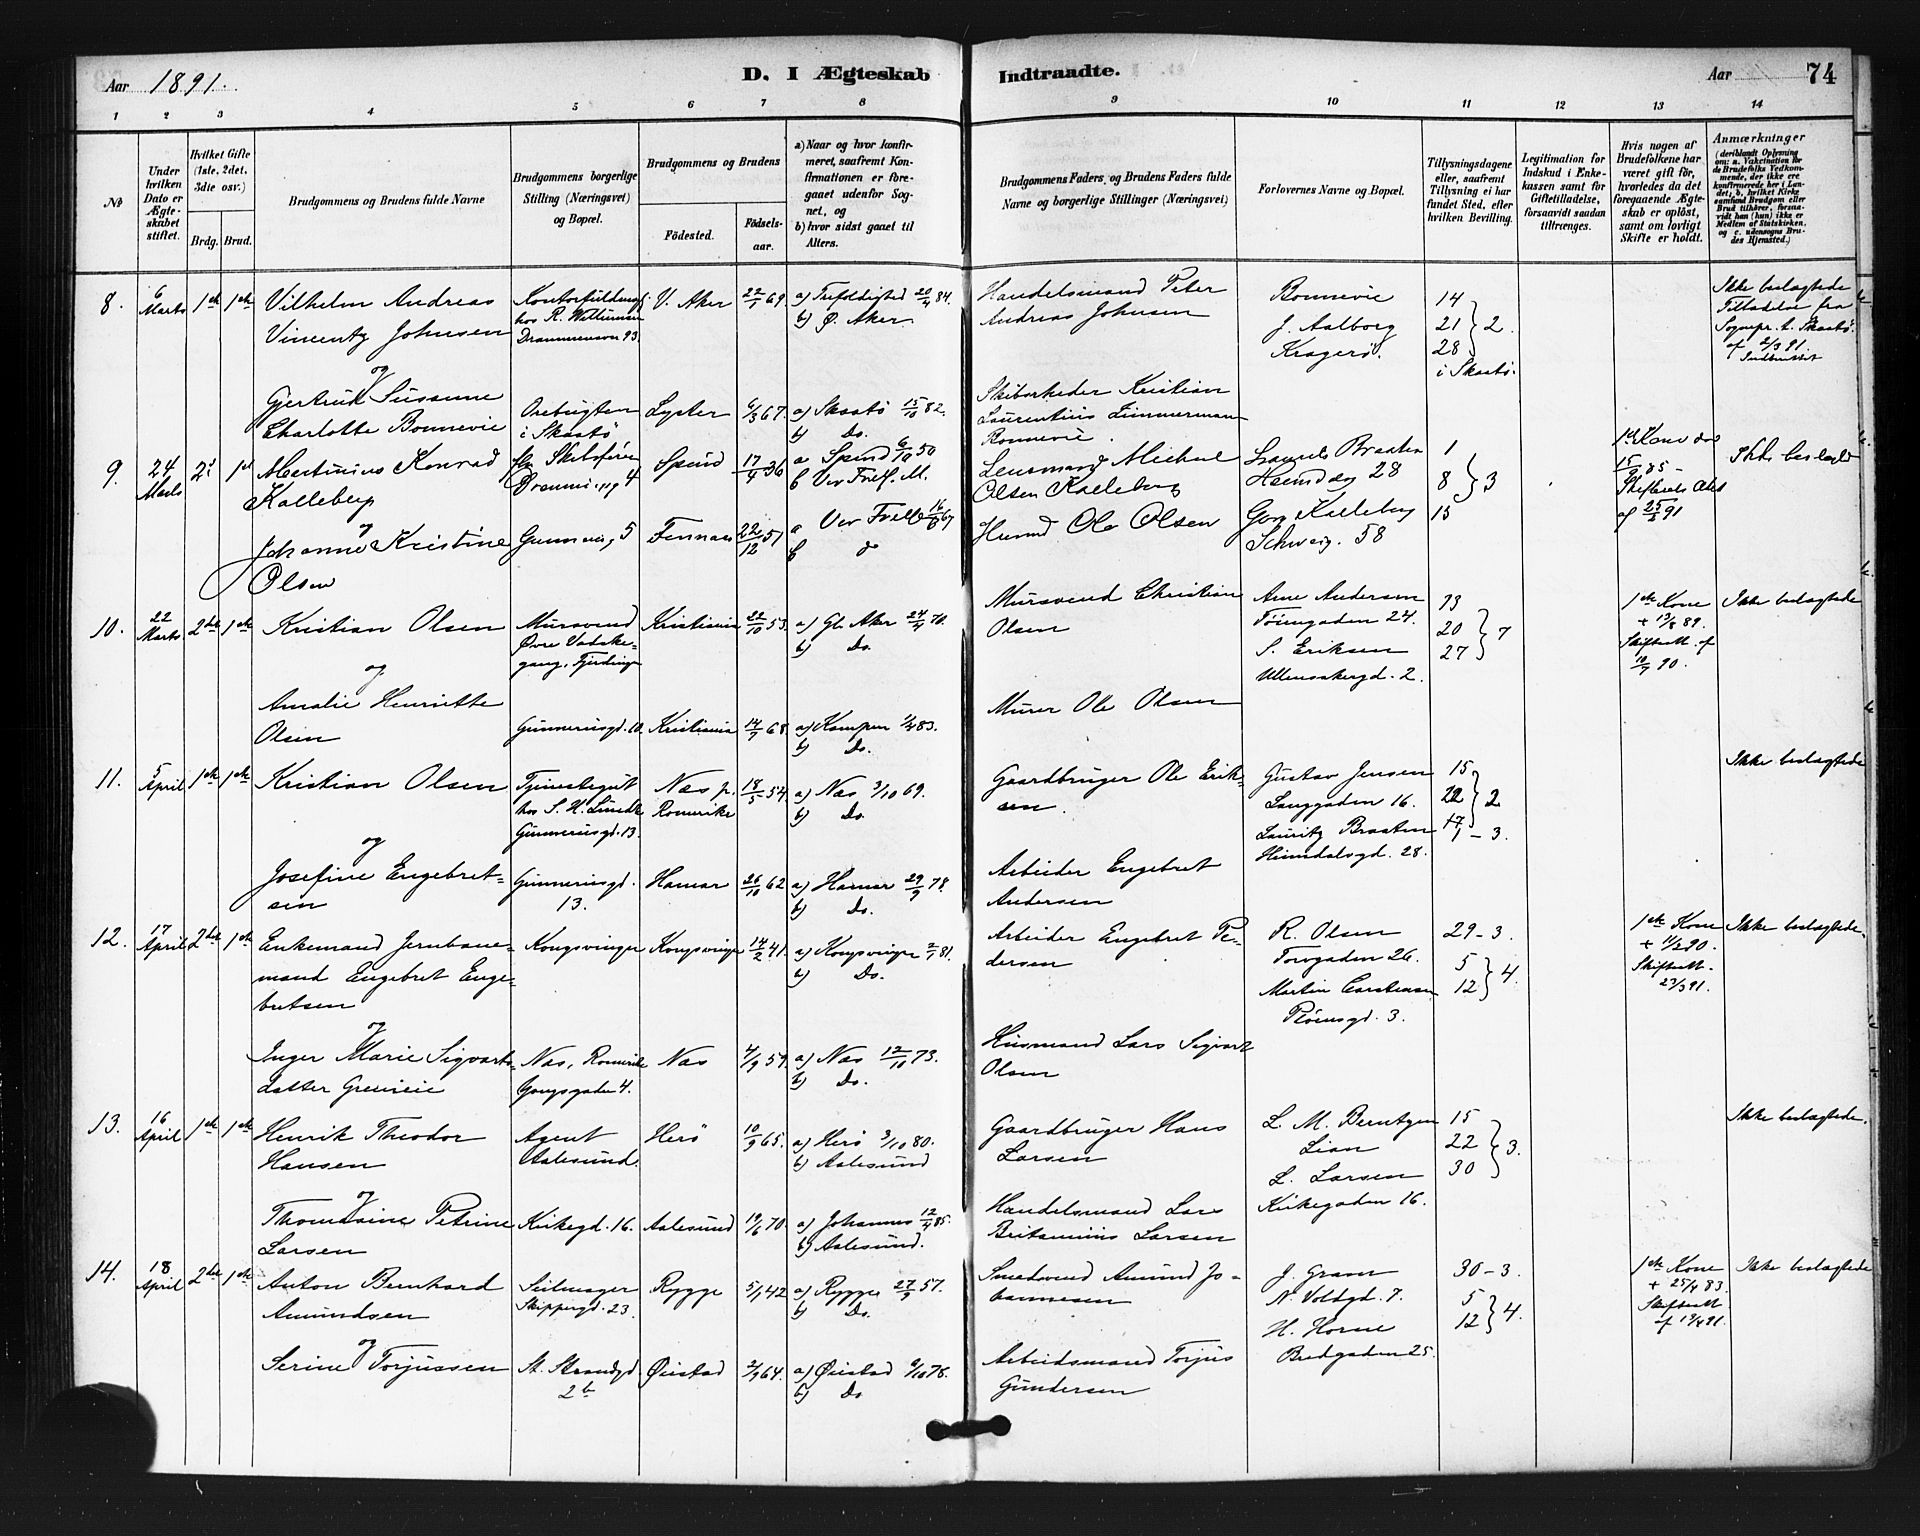 Aar 1891.
D. I Ægteskab Indtraadte.
Aar 74
1 2 3 4 5 6 7 8 9 10 11 12 13 14
No
Under hvilken Dato er Ægteskabet stiftet.
Hvilket Gifte (1ste, 2det, 3die osv.)
Brdg. Brud.
Brudgommens og Brudens fulde Navne
Brudgommens borgerlige Stilling (Næringsvei) og Bopæl.
Brudgommens og Brudens
Fødested.
Fødselsaar.
a) Naar og hvor konfirmeret, saafremt Konfirmationen er foregaaet udenfor Sognet, og
b) hvor sidst gaaet til Alters.
Brudgommens Faders og Brudens Faders fulde Navne og borgerlige Stillinger (Næringsvei)
Forlovernes Navne og Bopæl.
Tillysningsdagene eller, saafremt Tillysning ei har fundet Sted, efter hvilken Bevilling.
Legitimation for Indskud i Enkekassen samt for Giftetilladelse, forsaavidt saadan tiltrænges.
Hvis nogen af Brudefolkene har været gift før, hvorledes da det foregaaende Ægteskab er opløst, samt om lovligt Skifte er holdt.
Anmærkninger
(deriblandt Oplysning om: a. Vakcination for de Brudefolks Vedkommende, der ikke ere konfirmerede her i Landet; b. hvilket Kirkesamfund Brudgom eller Brud tilhører, forsaavidt han (hun) ikke er Medlem af Statskirken, og c. udensogns Brudes Hjemsted.)
8. 6 Marts 1ste 1ste Vilhelm Andreas
Vincentz Johnsen
hos R.
Drammensvn 93.
V. Aker 22/1 69
a) Trefoldighed 20/4 84.
b) Ø. Aker.
Handelsmand Peter
Andreas Johnsen
Bonnevie
J. Aalborg
Kragerø.
14
21 } 2.
28
i Skaatø.
Ikke beslægtede
Tilladelse fra
Sognepr. t. Skaatø.
af 2/3 91.
og
Gjertrud Susanne
Charlotte Bonnevie
Orebugten
i Skaatø
Lyster 6/3 67.
a) Skaatø 15/10 82.
b) Do.
Skibsrheder Kristian
Laurentius Zimmermann
Bonnevie.
9. 24 Marts 2d 1st Martinius Konrad
Kalleberg
Spind 17/4 36
a Spind 6/10 50
b Vor Frels. M.
Lensmand Michael
Olsen Kalleberg
Braaten
28
1
8 } 3
15
1st Kone død
15/9 85 -
af 25/2 91
Ikke beslægt
og
Johanne Kristine
Olsen
5
22/12 51
a Vor Frelse 67
b do
Husmd Ole Olsen
Kalleberg
Schweig. 58
10. 22 Marts 2det 1ste Kristian Olsen
Mursvend
Øvre Vadske-
gang, Fjerdingen
Kristiania 22/10 53.
a) Gl. Aker 24/4 70.
b) Do.
Mursvend Christian
Olsen
Arne Andersen
Tøiengaden 24.
S. Eriksen
Ullensakergd. 2.
13
20 } 7
27
1ste Kone
+ 13/8 89.
Skifteatt. af
10/9 90.
Ikke beslægtede
og
Amalie Henriette
Olsen
Gunneriusgd. 10.
Kristiania 14/7 68.
a) Kampen 1/4 83.
b) Do.
Murer Ole Olsen
11. 5 April 1ste 1ste Kristian Olsen
Tjenestegut
hos S. H. Lundh
Gunneriusgd. 13.
Næs p.
Romerike
18/5 54.
a) Næs 3/10 69.
b) Do.
Gaardbruger Ole Erik-
sen.
Gustav Jensen
Langgaden 16.
Lauritz Braaten
Heimdalsgd. 28.
15
22 } 2
- 3.
Ikke beslægtede
og
Josefine Engebret-
sen
Gunneriusgd.
13.
Hamar 26/10 62
a) Hamar 29/9 78.
b) Do.
Arbeider Engebret
Andersen
12. 17 April 2det 1ste Enkemand Jernbane-
mand Engebret Enge-
bretsen
Kongsvinger Kongsvinger 14/2 41.
a) Kongsvinger 81.
b) Do.
Arbeider Engebret Pe-
dersen
R. Olsen
Torvgaden 26.
Martin Carstensen
Pløensgd. 3.
29 - 3.
5
12 } 4.
1ste Kone
+ 1/2 90.
Skifteatt.
23/3 91.
Ikke beslægtede.
og
Inger Marie Sigvarts-
datter
Næs, Romerike
Næs 4/9 59.
a) Næs 12/10 73.
b) Do.
Husmand Lars Sigvart
Olsen
13. 16 April 1ste 1ste Henrik Theodor
Hansen
Agent
Aalesund.
Herø 10/9 65.
a) Herø 3/10 80.
b) Aalesund
Gaardbruger Hans
Larsen
L. M. Berntzen
Lian
L. Larsen
Kirkegaden 16.
15
22 } 3.
30
Ikke beslægtede.
og
Thomasine Petrine
Larsen
Kirkegd. 16.
Aalesund 19/6 70.
a) Johannes 12/4 85.
b) Aalesund.
Handelsmand Lars
Britannius Larsen
14. 18 April 2det 1ste Anton Bernhard
Amundsen
Seilmager
Skippergd. 23.
Rygge 5/1 42
a) Rygge 27/9 57.
b) Do.
Smedsvend Amund Jo-
hannesen
J. Gram
N. Voldgd. 7.
H. Horne
Bredgaden 25.
30 - 3.
5
12 } 4.
1ste Kone
+ 25/4 83.
Skifteatt
Ikke beslægtede
og
Serine Torjussen
St. Strandgd
2b
Øiestad 2/9 64.
a) Øiestad 6/10 78.
b) Do
Arbeidsmand Torjus
Gundersen